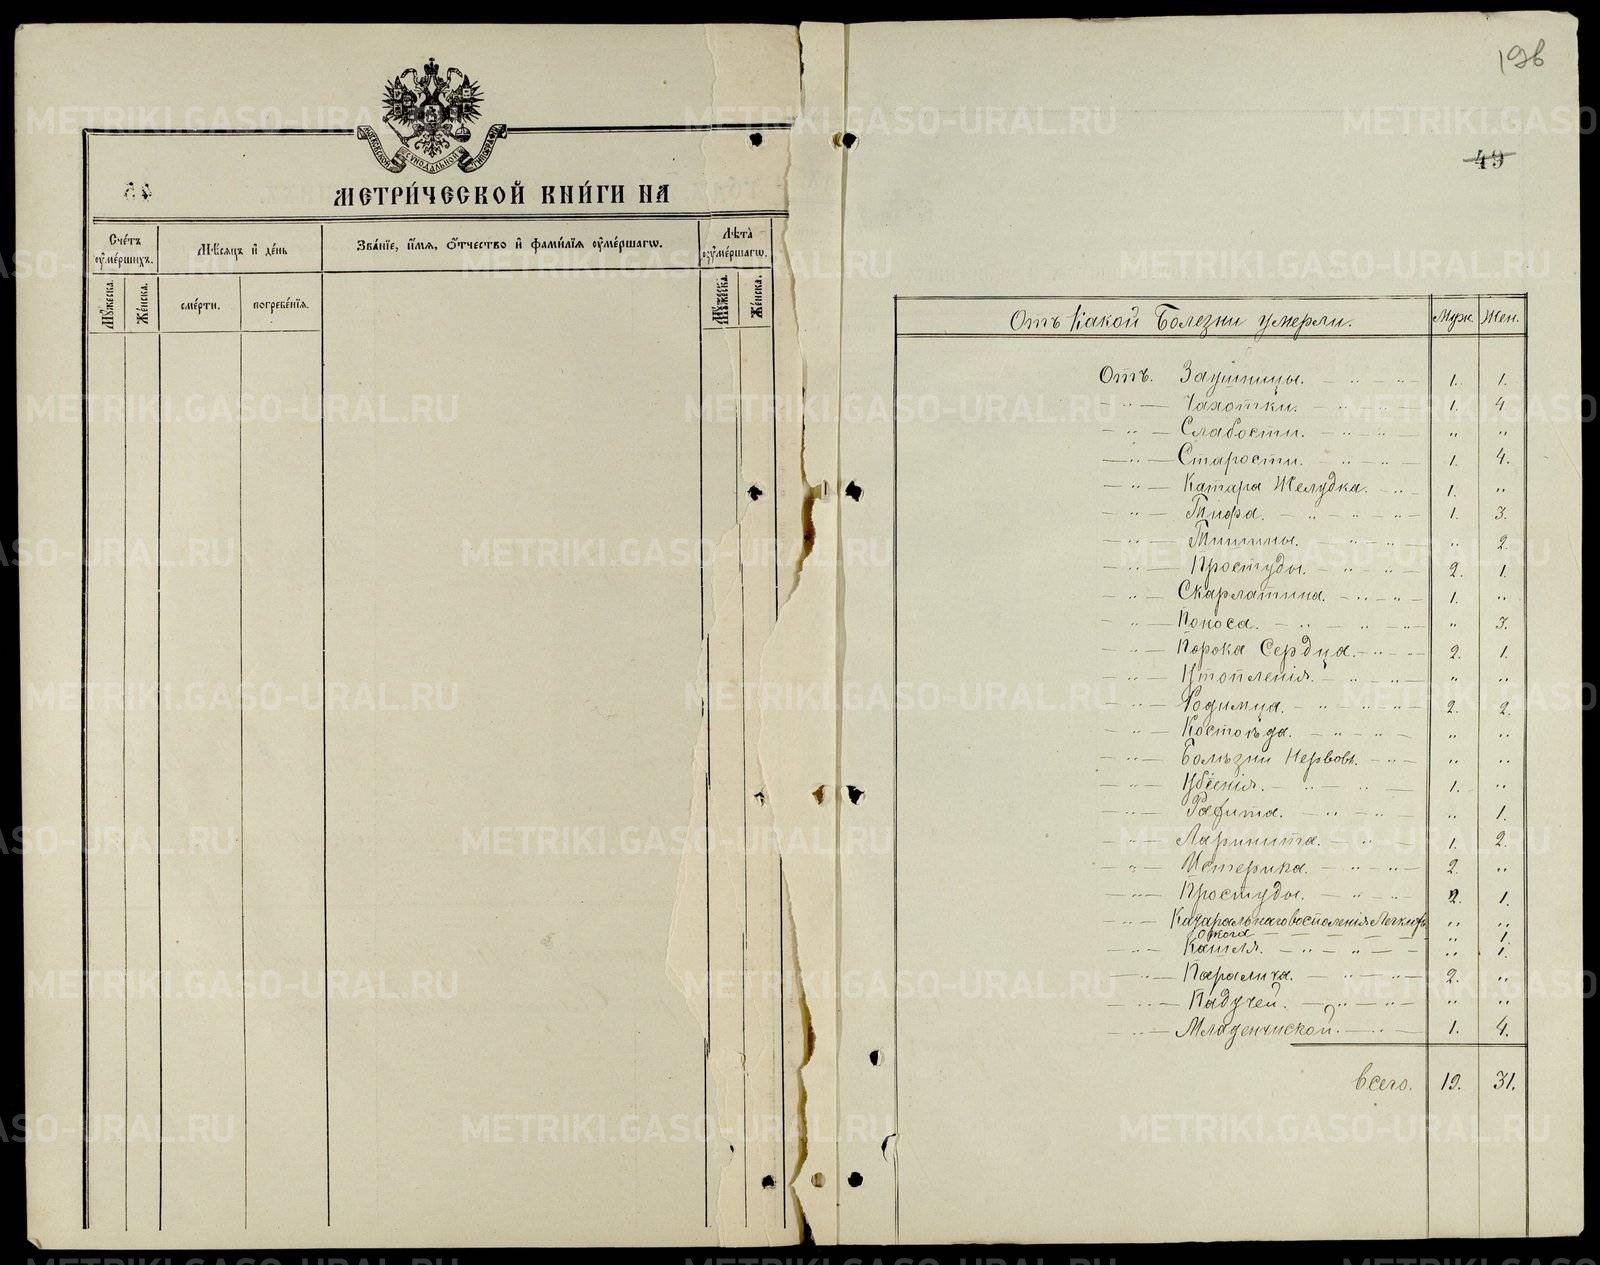 196
49
МОСКОВСКОЙ СУНОДАЛЬНОЙ ТИПОГРАФІИ
МЕТРИ́ЧЕСКОЙ КНИ́ГИ НА
Сче́тъ ᲂу҆ме́ршихъ.
Мѣ́сяцъ и҆ де́нь
Зва́нїе, и҆́мя, ѻ҆́тчество и҆ фами́лїя ᲂу҆ме́ршагѡ.
Лѣ́та ᲂу҆ме́ршагѡ.
Мꙋ́жеска.
Же́нска.
сме́рти.
погребе́нїя.
Мꙋ́жеска.
Же́нска.
Отъ Какой Болезни умерли. Муж. Жен.
Отъ. Заушницы. 1. 1.
— „ — Чахотки. 1. 4.
— „ — Слабости. „ „
— „ — Старости. 1. 4.
— „ — Катара Желудка. 1. „
— „ — Тифа. 1. 3.
— „ — „ 2.
— „ — Простуды. 2. 1.
— „ — Скарлатина. 1. „
— „ — Поноса. „ 3.
— „ — Порока Сердца. 2. 1.
— „ — Утопленія. „ „
— „ — Родимца. 2. 2.
— „ — Костоѣда. „ „
— „ — Болѣзни Нервовъ. „ „
— „ — Убіенія. 1. „
— „ — „ 1.
— „ — Ларинита. 1. 2.
— „ — Истерика. 2. „
— „ — Простуды. 2. 1.
— „ — Катаральнаго воспаленія Легкихъ „ „
Ожога „ 1.
— „ — Кашля. „ 1.
— „ — Паралича. 2. „
— „ — Падучей. „ „
— „ — Младенчиской. 1. 4.
всего. 19. 31.
METRIKI.GASO-URAL.RU